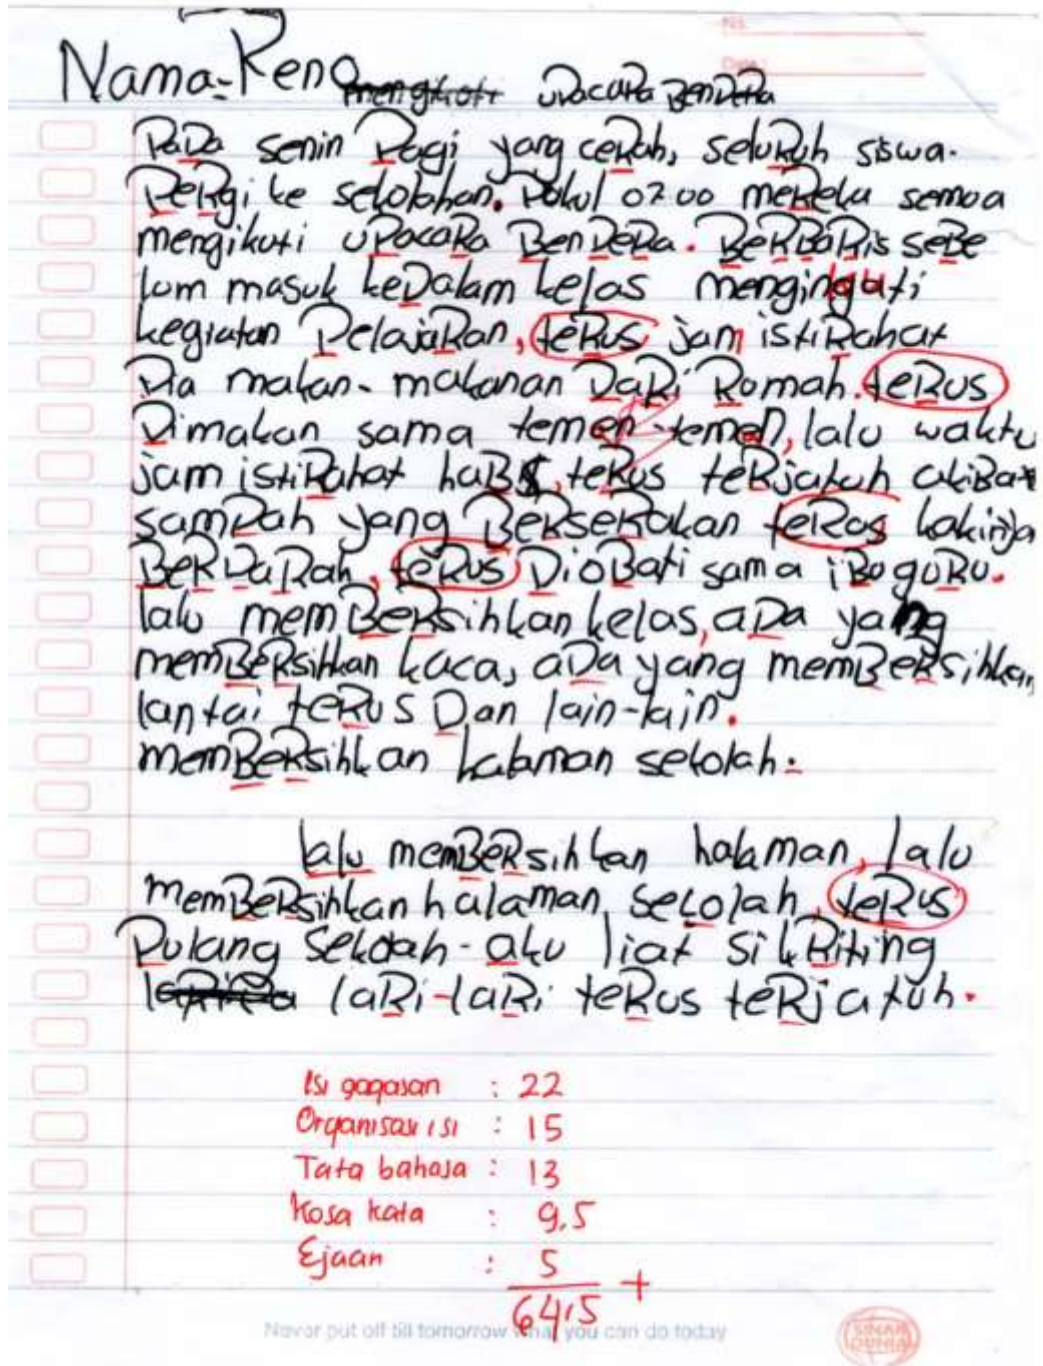 No.
Date:
Nama-Reno
mengikuti uPacaRa BenDeRa
PaDa senin Pagi yang ceRah, seluRuh siswa.
PeRgi ke sekolahan. Pukul 07.00 meReka semua
mengikuti uPacaRa BenDeRa. BeRBaRis seBe
lum masuk keDalam kelas menginguti
kegiatan PelajaRan, teRus jam istiRahat
Dia makan-makanan DaRi Rumah. teRus
Dimakan sama temen-temen, lalu waktu
jam istiRahat haBis, teRus teRjatuh akiBat
samPah yang BeRseRakan teRus kakinya
BeRDaRah, teRus DioBati sama iBuguRu.
lalu memBeRsihkan kelas, aDa yang
memBeRsihkan kaca, aDa yang memBeRsihkan
lantai teRus Dan lain-lain.
memBeRsihkan halaman sekolah.
lalu memBeRsihkan halaman, lalu
memBeRsihkan halaman sekolah, teRus
Pulang sekolah-aku liat si kRiting
laRi-laRi teRus teRjatuh.
Isi gagasan : 22
Organisasi isi : 15
Tata bahasa : 13
Kosa kata : 9,5
Ejaan : 5
+
64,5
Never put off till tomorrow what you can do today
SINAR DUNIA